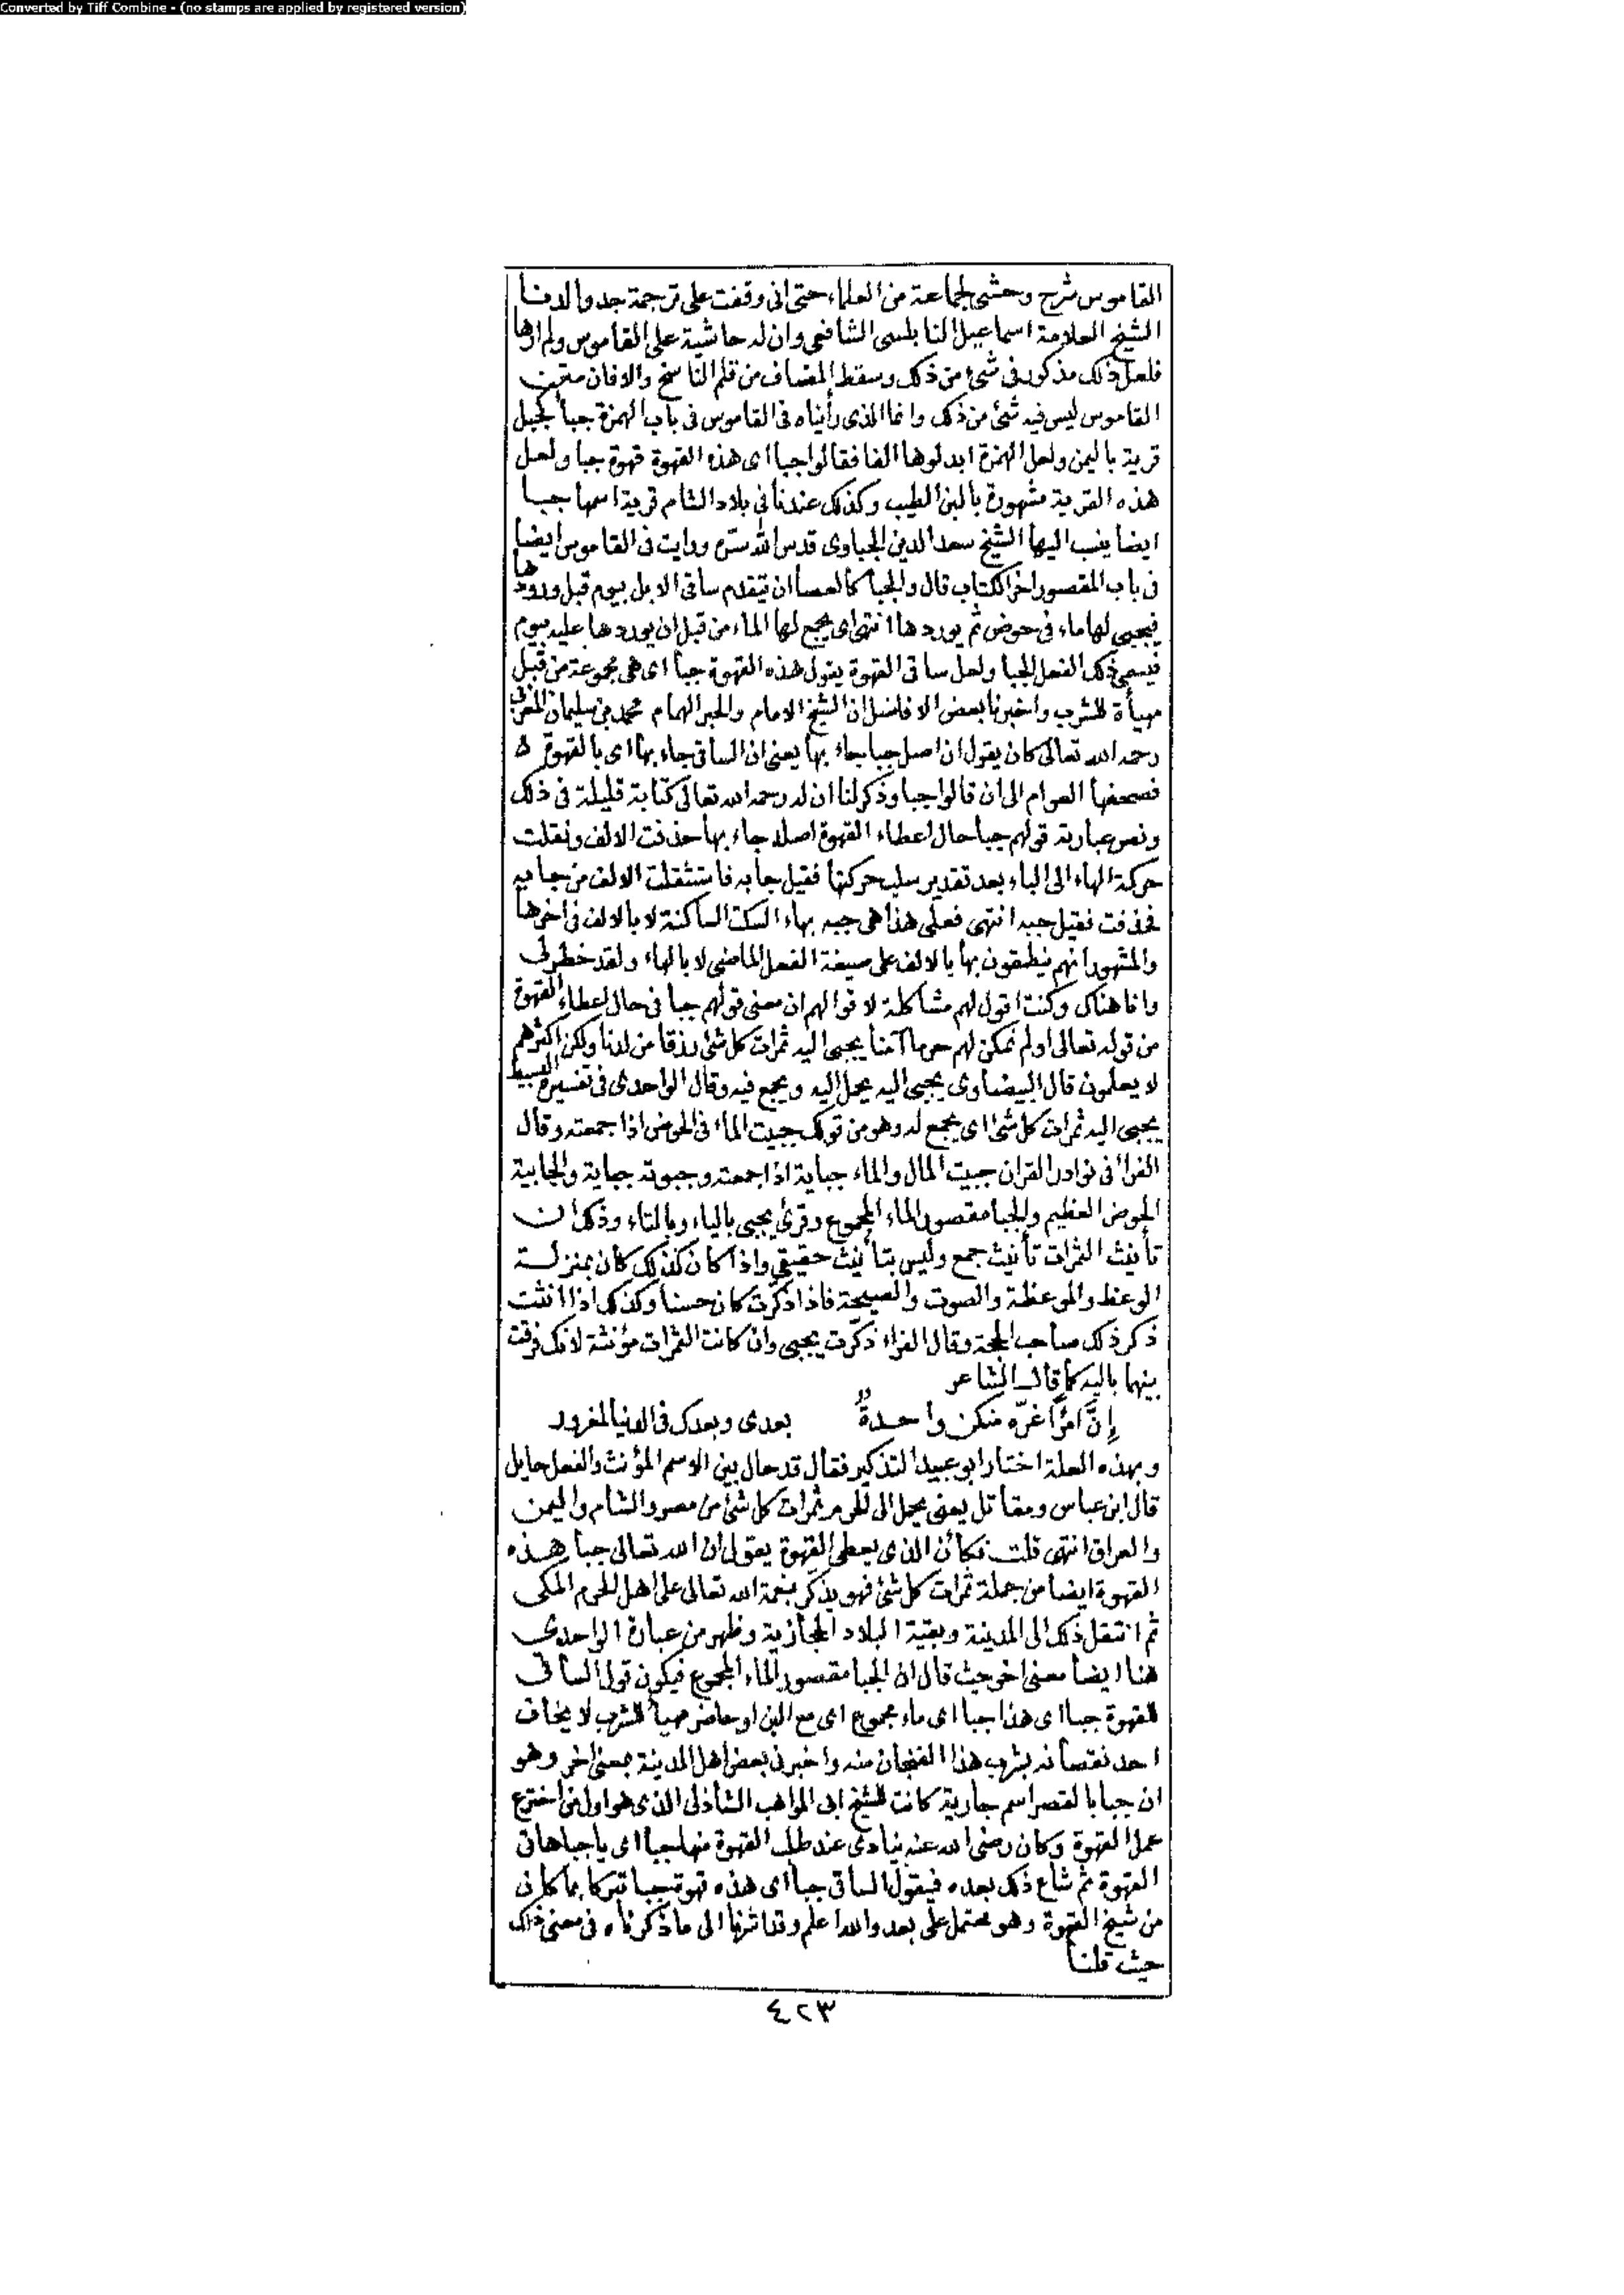 Converted by Tiff Combine - (no stamps are applied by registered version)
القاموس شرح وحشى لجماعة من العلماء حتى انى وقفت على ترجمة جد والدنا
الشيخ العلامة اسماعيل النابلسى الشافعى وان له حاشية على القاموس ولم ارها
فلعل ذلك مذكور فى شئ من ذلك وسقط المضاف من قلم الناسخ والا فان متن
القاموس ليس فيه شئ من ذلك وانما الذى رأيناه فى القاموس فى باب الهمزة جبأ كجبل
قرية باليمن ولعل الهمزة ابدلوها الفا فقالوا جبا اى هذه القهوة قهوة جبا ولعل
هذه القرية مشهورة بالبن الطيب وكذلك عندنا فى بلاد الشام قرية اسمها جبا
ايضا ينسب اليها الشيخ سعد الدين الجباوى قدس الله سره ورايت فى القاموس ايضا
فى باب المقصور اخر الكتاب قال والجبا كالعصا ان يتقدم ساقى الابل بيوم قبل ورودها
فيجبى لها ماء فى حوض ثم يوردها انتهى اى يجمع لها الماء من قبل ان يوردها عليه بيوم
فيسمى ذلك الفعل الجبا ولعل ساقى القهوة يقول هذه القهوة جبا اى هى مجموعة من قبل
مهيأة للشرب واخبرنا بعض الافاضل ان الشيخ الامام والحبر الهمام محمد بن سليمان المغربى
رحمه الله تعالى كان يقول ان اصل جبا جاء بها يعنى ان الساقى جاء بها اى بالقهوة
فصحفها العوام الى ان قالوا جبا وذكر لنا ان له رحمه الله تعالى كتابة قليلة فى ذلك
ونص عبارته قولهم جبا حال اعطاء القهوة اصله جاء بها حذفت الالف ونقلت
حركة الهاء الى الباء بعد تقدير سلب حركتها فقيل جا به فاستثقلت الالف من جا به
فحذفت فقيل جبه انتهى فعلى هذا هى جبه بهاء السكت الساكنة لا بالالف فى اخرها
والمشهور انهم ينطقون بها بالالف على صيغة الفعل الماضى لا بالهاء ولقد خطر لى
وانا هناك وكنت اقول لهم مشاكلة لاقوالهم ان معنى قولهم جبا فى حال اعطاء القهوة
من قوله تعالى اولم نمكن لهم حرما آمنا يجبى اليه ثمرات كل شئ رزقا من لدنا ولكن اكثرهم
لا يعلمون قال البيضاوى يجبى اليه يحمل اليه ويجمع فيه وقال الواحدى فى تفسيره البسيط
يجبى اليه ثمرات كل شئ اى يجمع له وهو من قولك جبيت الماء فى الحوض اذا جمعته وقال
الفرا فى نوادر القران جبيت المال والماء جباية اذا جمعته وجبوته جباية والجابية
الحوض العظيم والجبا مقصور الماء المجموع وقرئ يجبى بالياء وبالتاء وذلك ان
تأنيث الثمرات تأنيث جمع وليس بتأنيث حقيقى واذا كان كذلك كان بمنزلة
الوعظ والموعظة والصوت والصيحة فاذا ذكرت كان حسنا وكذلك اذا انثت
ذكر ذلك صاحب الحجة وقال الفراء ذكرت يجبى وان كانت الثمرات مؤنثة لانك فرقت
بينهما باليه كما قال الشاعر
إنّ امرًا غرّه منكن واحدةٌ بعدى وبعدك فى الدنيا لمغرور
وبهذه العلة اختار ابو عبيد التذكير فقال قد حال بين الاسم المؤنث والفعل حايل
قال ابن عباس ومقاتل يعنى يحمل الى الحرم ثمرات كل شئ من مصر والشام واليمن
والعراق انتهى قلت فكأن الذى يعطى القهوة يقول ان الله تعالى جبا هذه
القهوة ايضا من جملة ثمرات كل شئ فهو يذكّر بنعمة الله تعالى على اهل الحرم المكى
ثم انتقل ذلك الى المدينة وبقية البلاد الحجازية وظهر من عبارة الواحدى
هنا ايضا معنى اخر حيث قال ان الجبا مقصور الماء المجموع فيكون قول الساقى
للقهوة جبا اى هذا جبا اى ماء مجموع اى مع البن او حاضر مهيأ للشرب لا يخاف
احد نقصانه بشرب هذا الفنجان منه واخبرنى بعض اهل المدينة بمعنى اخر وهو
ان جبا بالقصر اسم جارية كانت للشيخ ابى المواهب الشاذلى الذى هو اول من اخترع
عمل القهوة وكان رضى الله عنه ينادى عند طلب القهوة منها جبا اى يا جبا هاتى
القهوة ثم شاع ذلك بعده فيقول الساقى جبا اى هذه قهوة جبا تبركا بما كان
من شيخ القهوة وهو محتمل على بعد والله اعلم وقد اشرنا الى ما ذكرناه فى معنى ذلك
حيث قلنا
٤٢٣